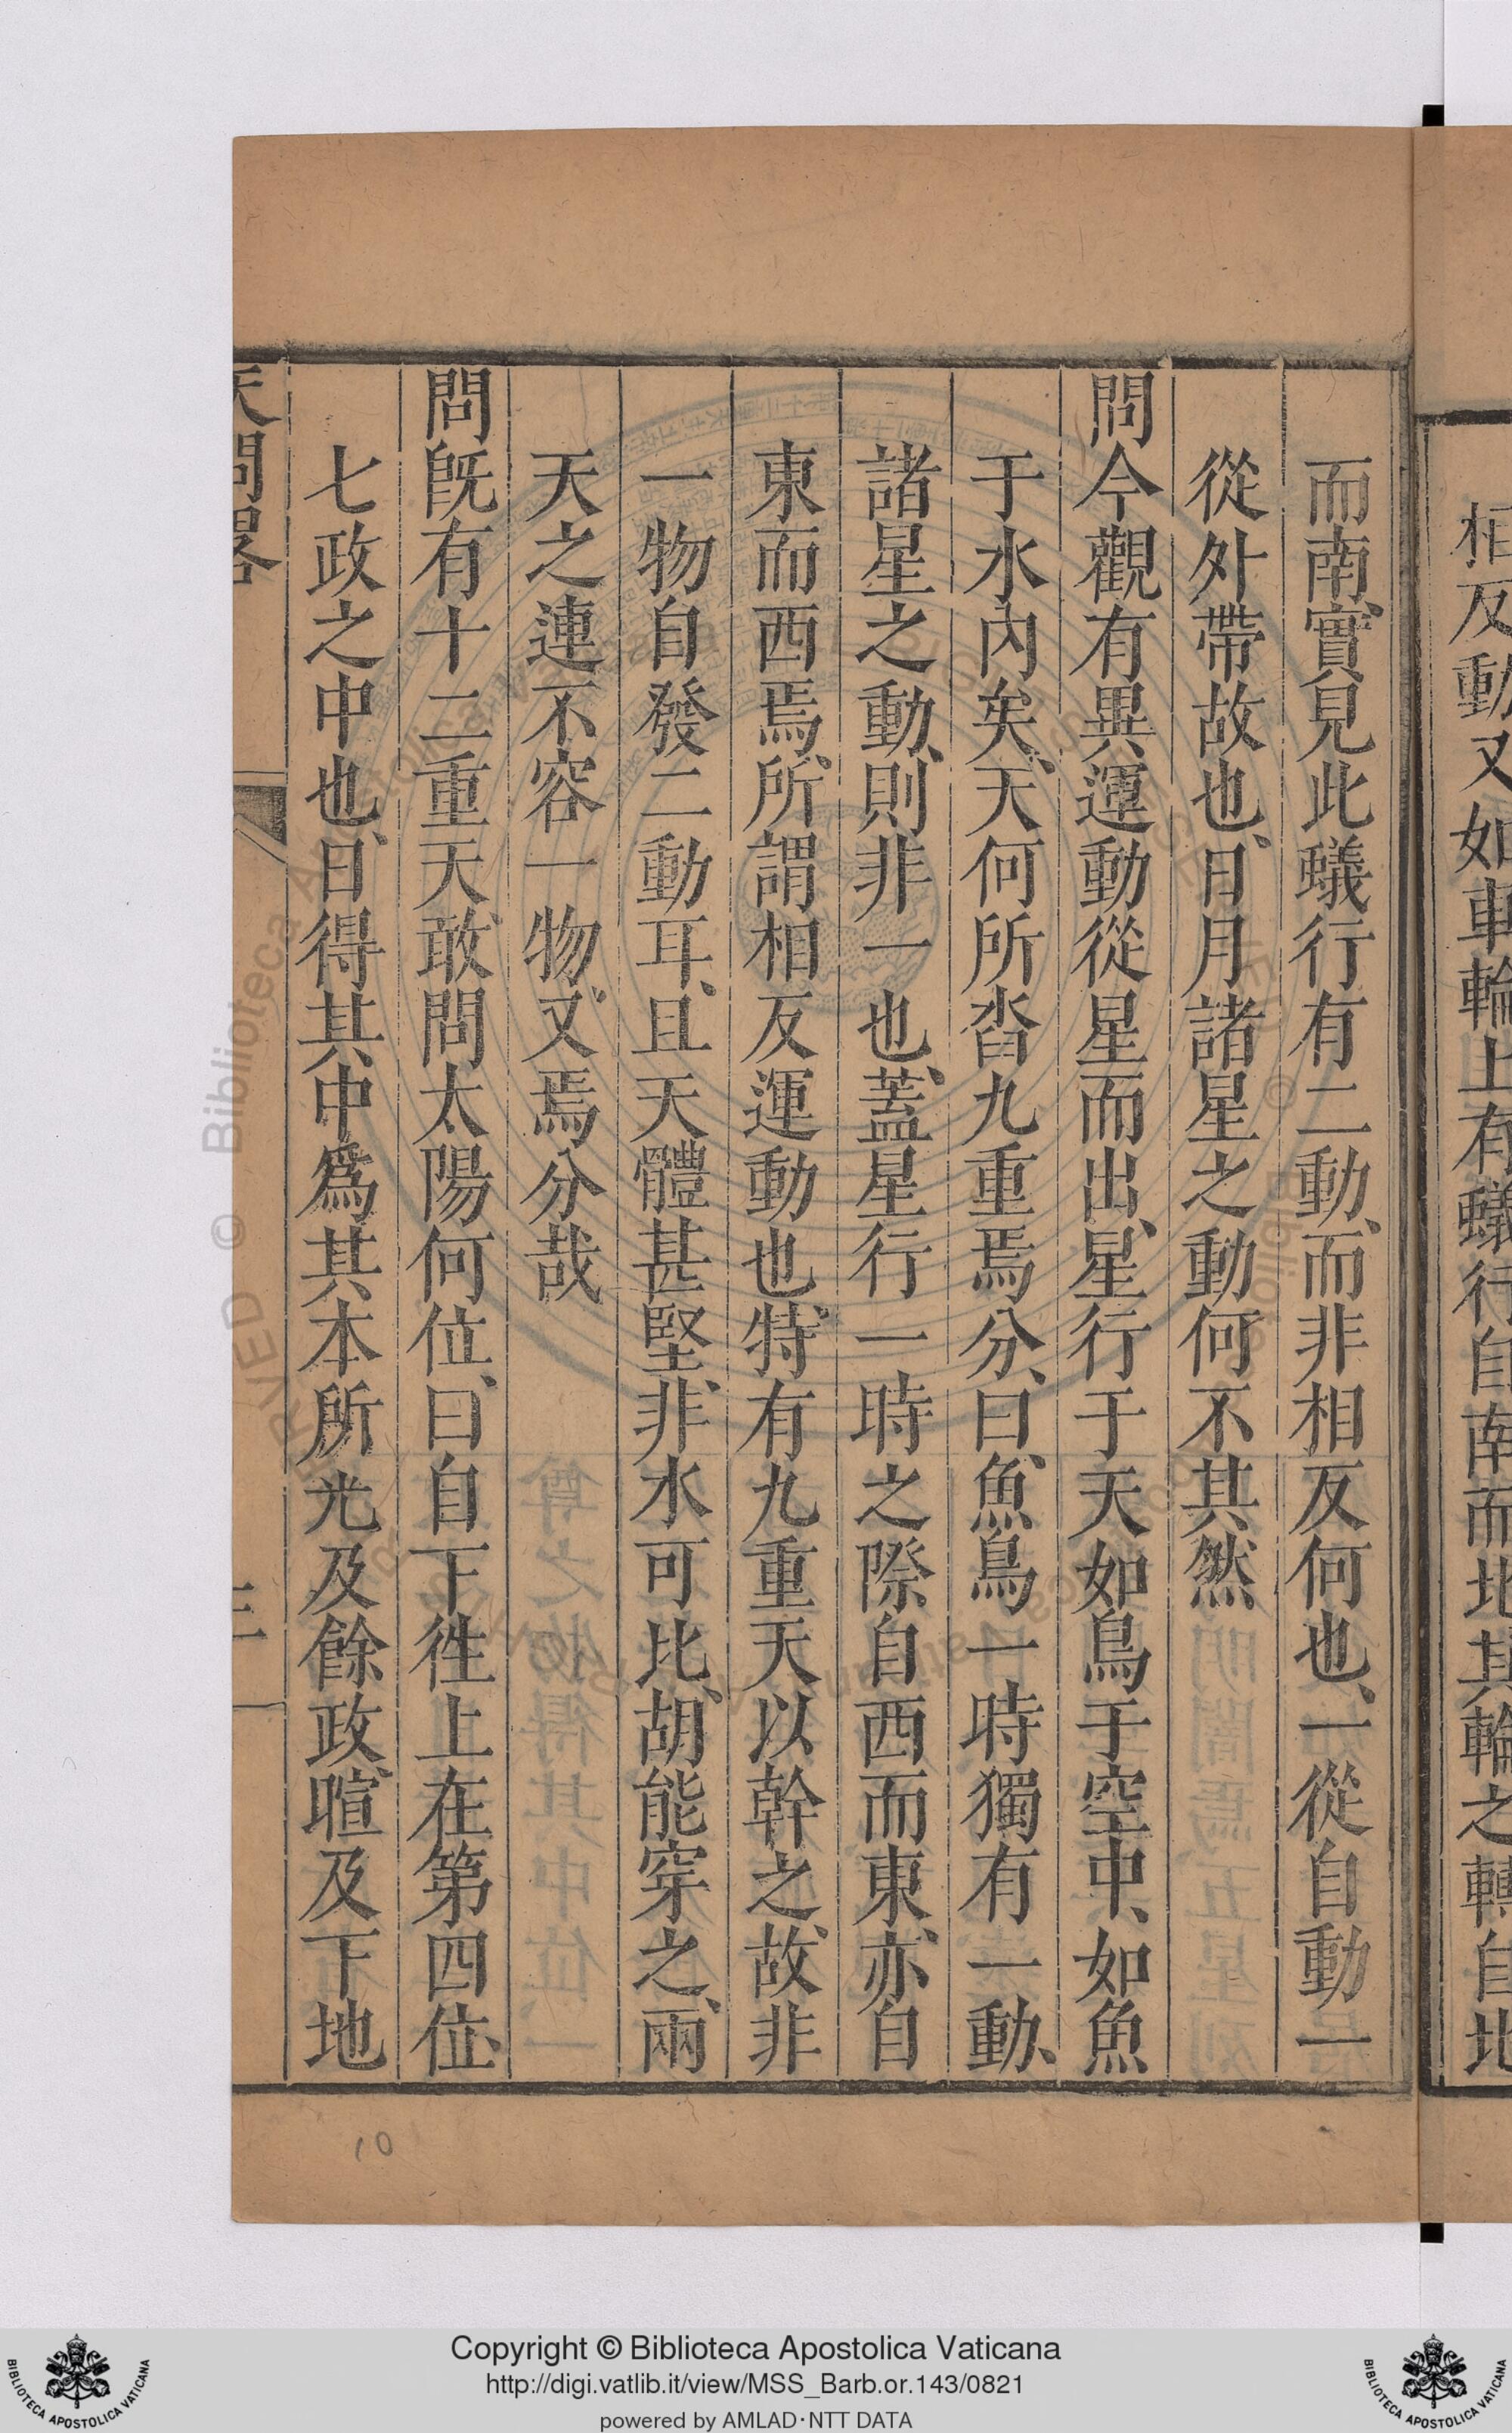 相反動又如車輪上有蟻行自南而北其輪之轉自北
而南、實見此蟻行有二動、而非相反何也、一從自動一
從外帶故也、日月諸星之動何不其然
問今觀有異運動從星而出、星行于天如鳥于空中、如魚
于水內矣、天何所沓九重焉分、曰、魚鳥一時獨有一動、
諸星之動、則非一也、蓋星行一時之際自西而東、亦自
東而西焉、所謂相反運動也、特有九重天以幹之、故非
一物自發二動耳、且天體甚堅、非水可比、胡能穿之、兩
天之連不容一物、又焉分哉
問旣有十二重天、敢問太陽何位、曰自下徃上在第四位、
七政之中也、日得其中爲其本所光及餘政、暄及下地
天問畧
三
10
© Biblioteca Apostolica Vaticana
Copyright © Biblioteca Apostolica Vaticana
http://digi.vatlib.it/view/MSS_Barb.or.143/0821
powered by AMLAD·NTT DATA
BIBLIOTECA APOSTOLICA VATICANA
BIBLIOTECA APOSTOLICA VATICANA